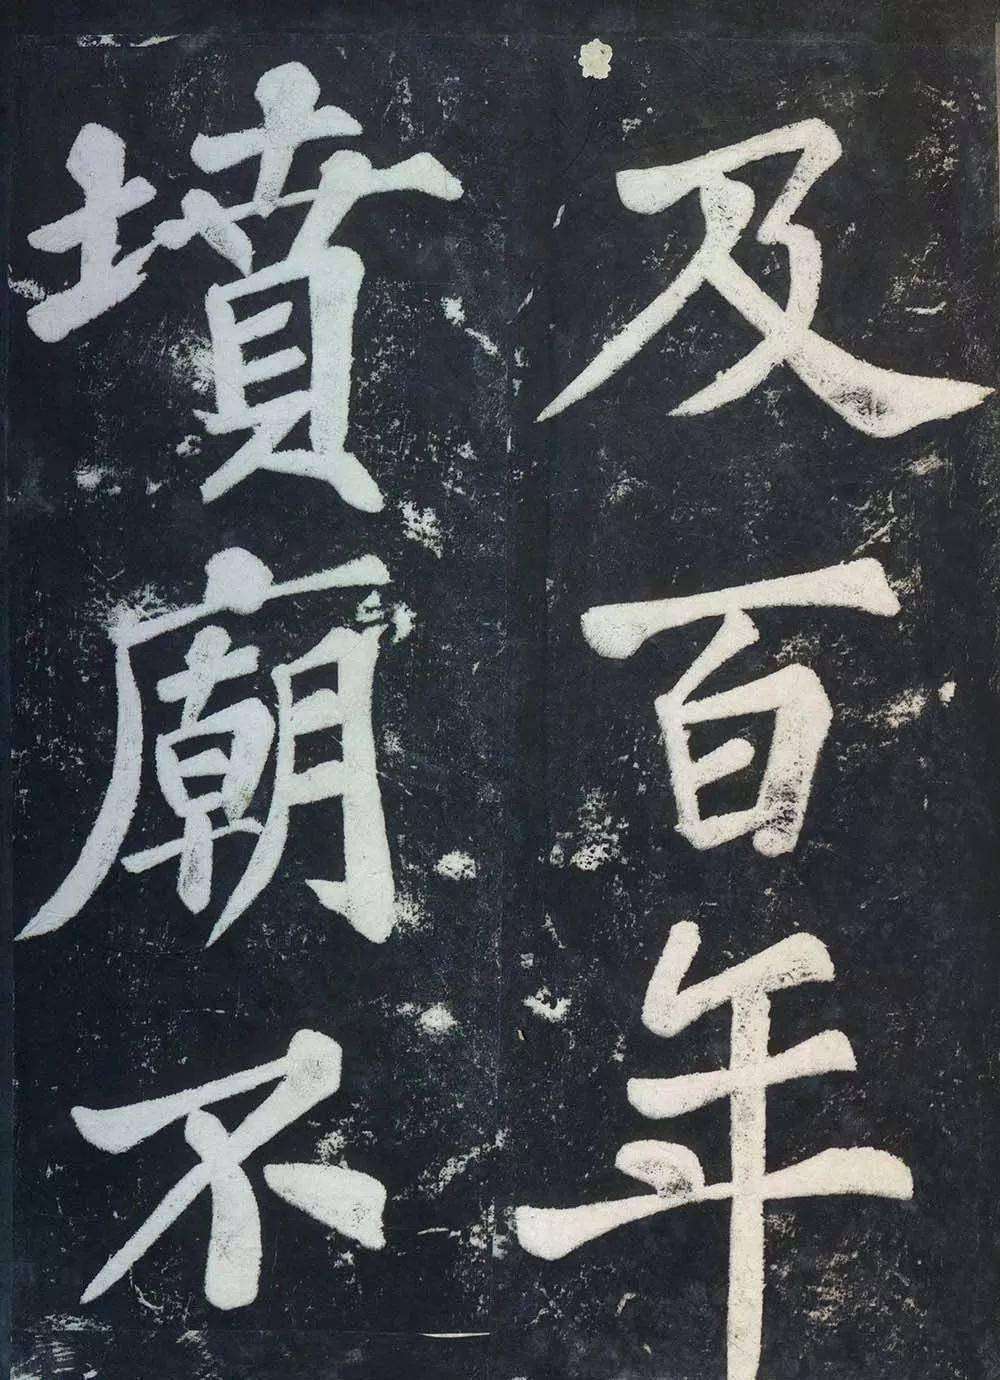 及百年
墳廟不